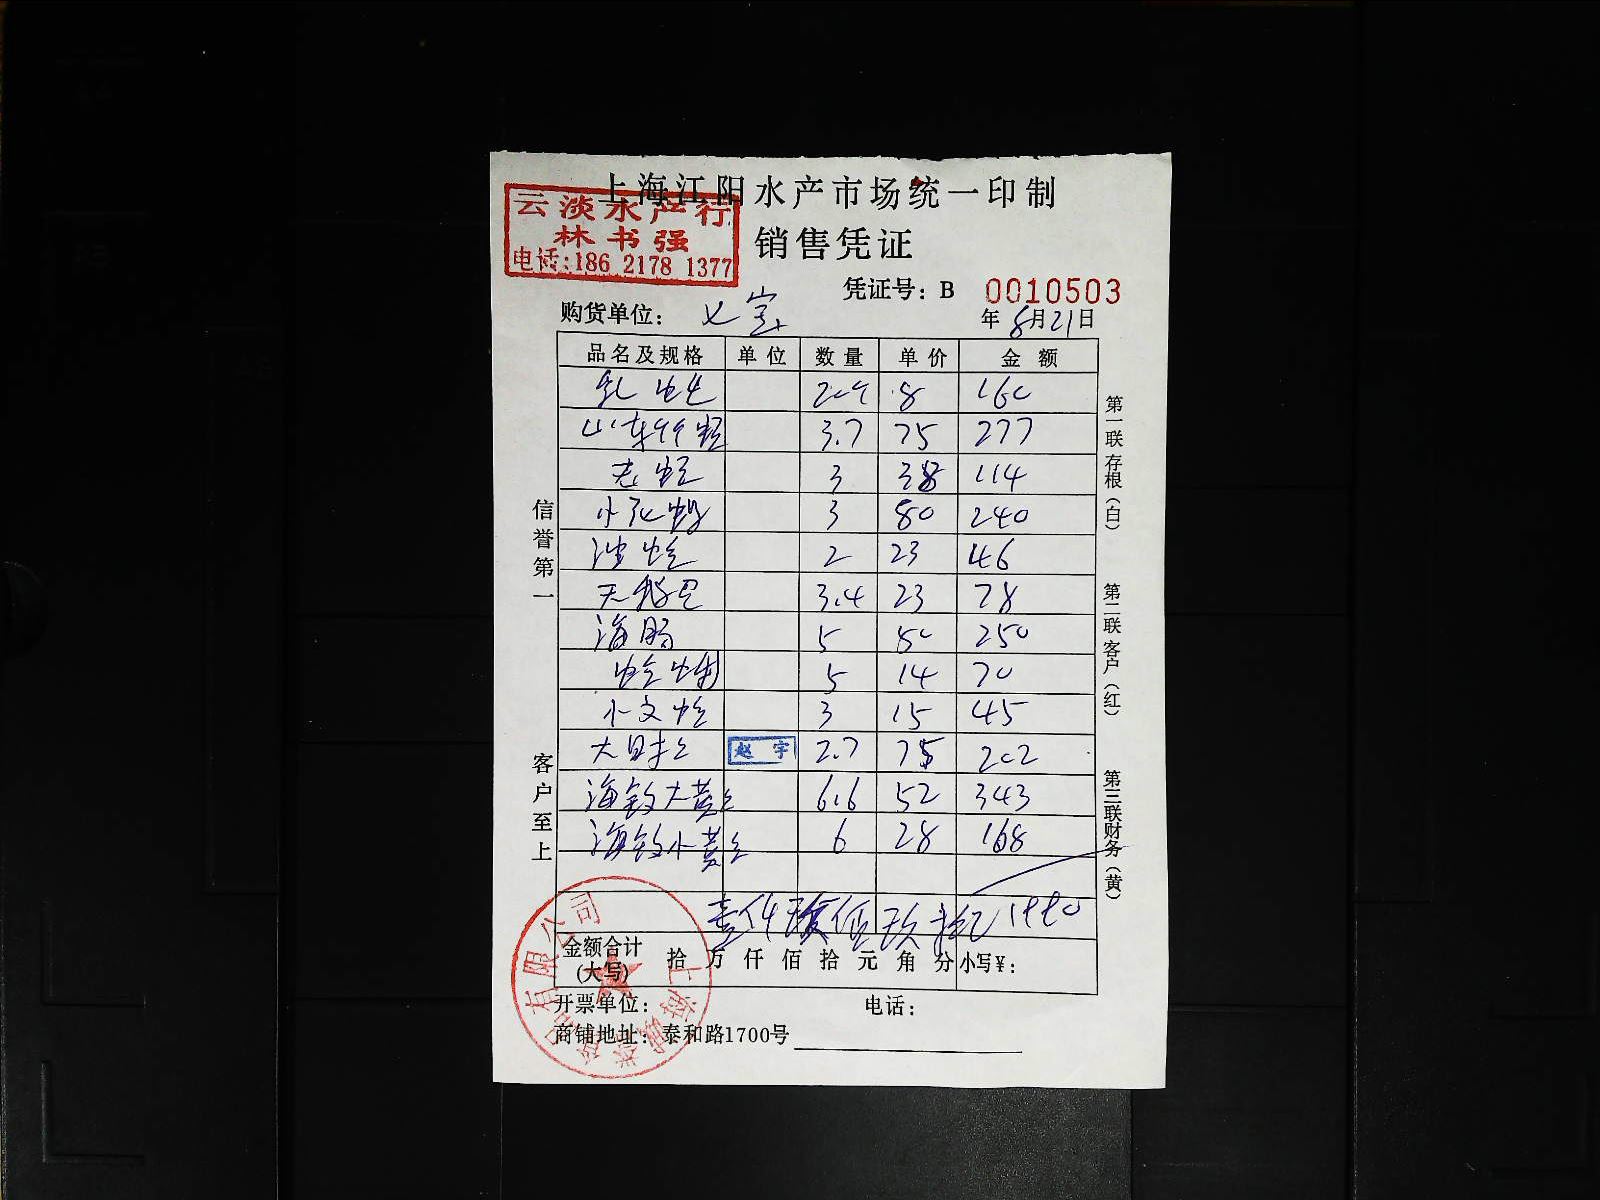 上海江阳水产市场统一印制
云淡水产行
林书强
电话:186 2178 1377
销售凭证
凭证号: B 0010503
购货单位: 七宝
年 8月21日
品名及规格 单位 数量 单价 金额
8 160
山东 3.7 75 277
3 38 114
小 3 80 240
2 23 46
3.4 23 78
海肠 5 50 250
5 14 70
小文蛤 3 15 45
大 赵宇 2.7 75 202
海钓大黄 6.6 52 343
海钓小黄 6 28 168
壹仟玖佰玖拾 1990
金额合计(大写) 拾 万 仟 佰 拾 元 角 分 小写¥:
开票单位: 电话:
商铺地址: 泰和路1700号
信誉第一
客户至上
第一联存根(白)
第二联客户(红)
第三联财务(黄)